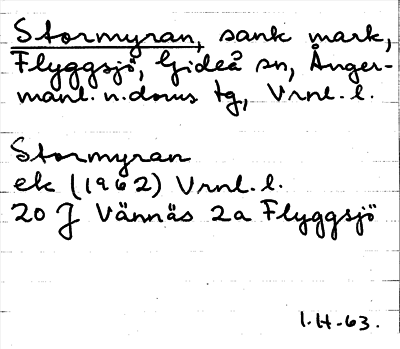 Stormyran, sank mark,
Flyggsjö, Gideå sn, Ånger-
manl. n. doms tg, Vrnl. l.
Stormyran
ek (1962) Vrnl. l.
20 J Vännäs 2a Flyggsjö
1.H.-63.